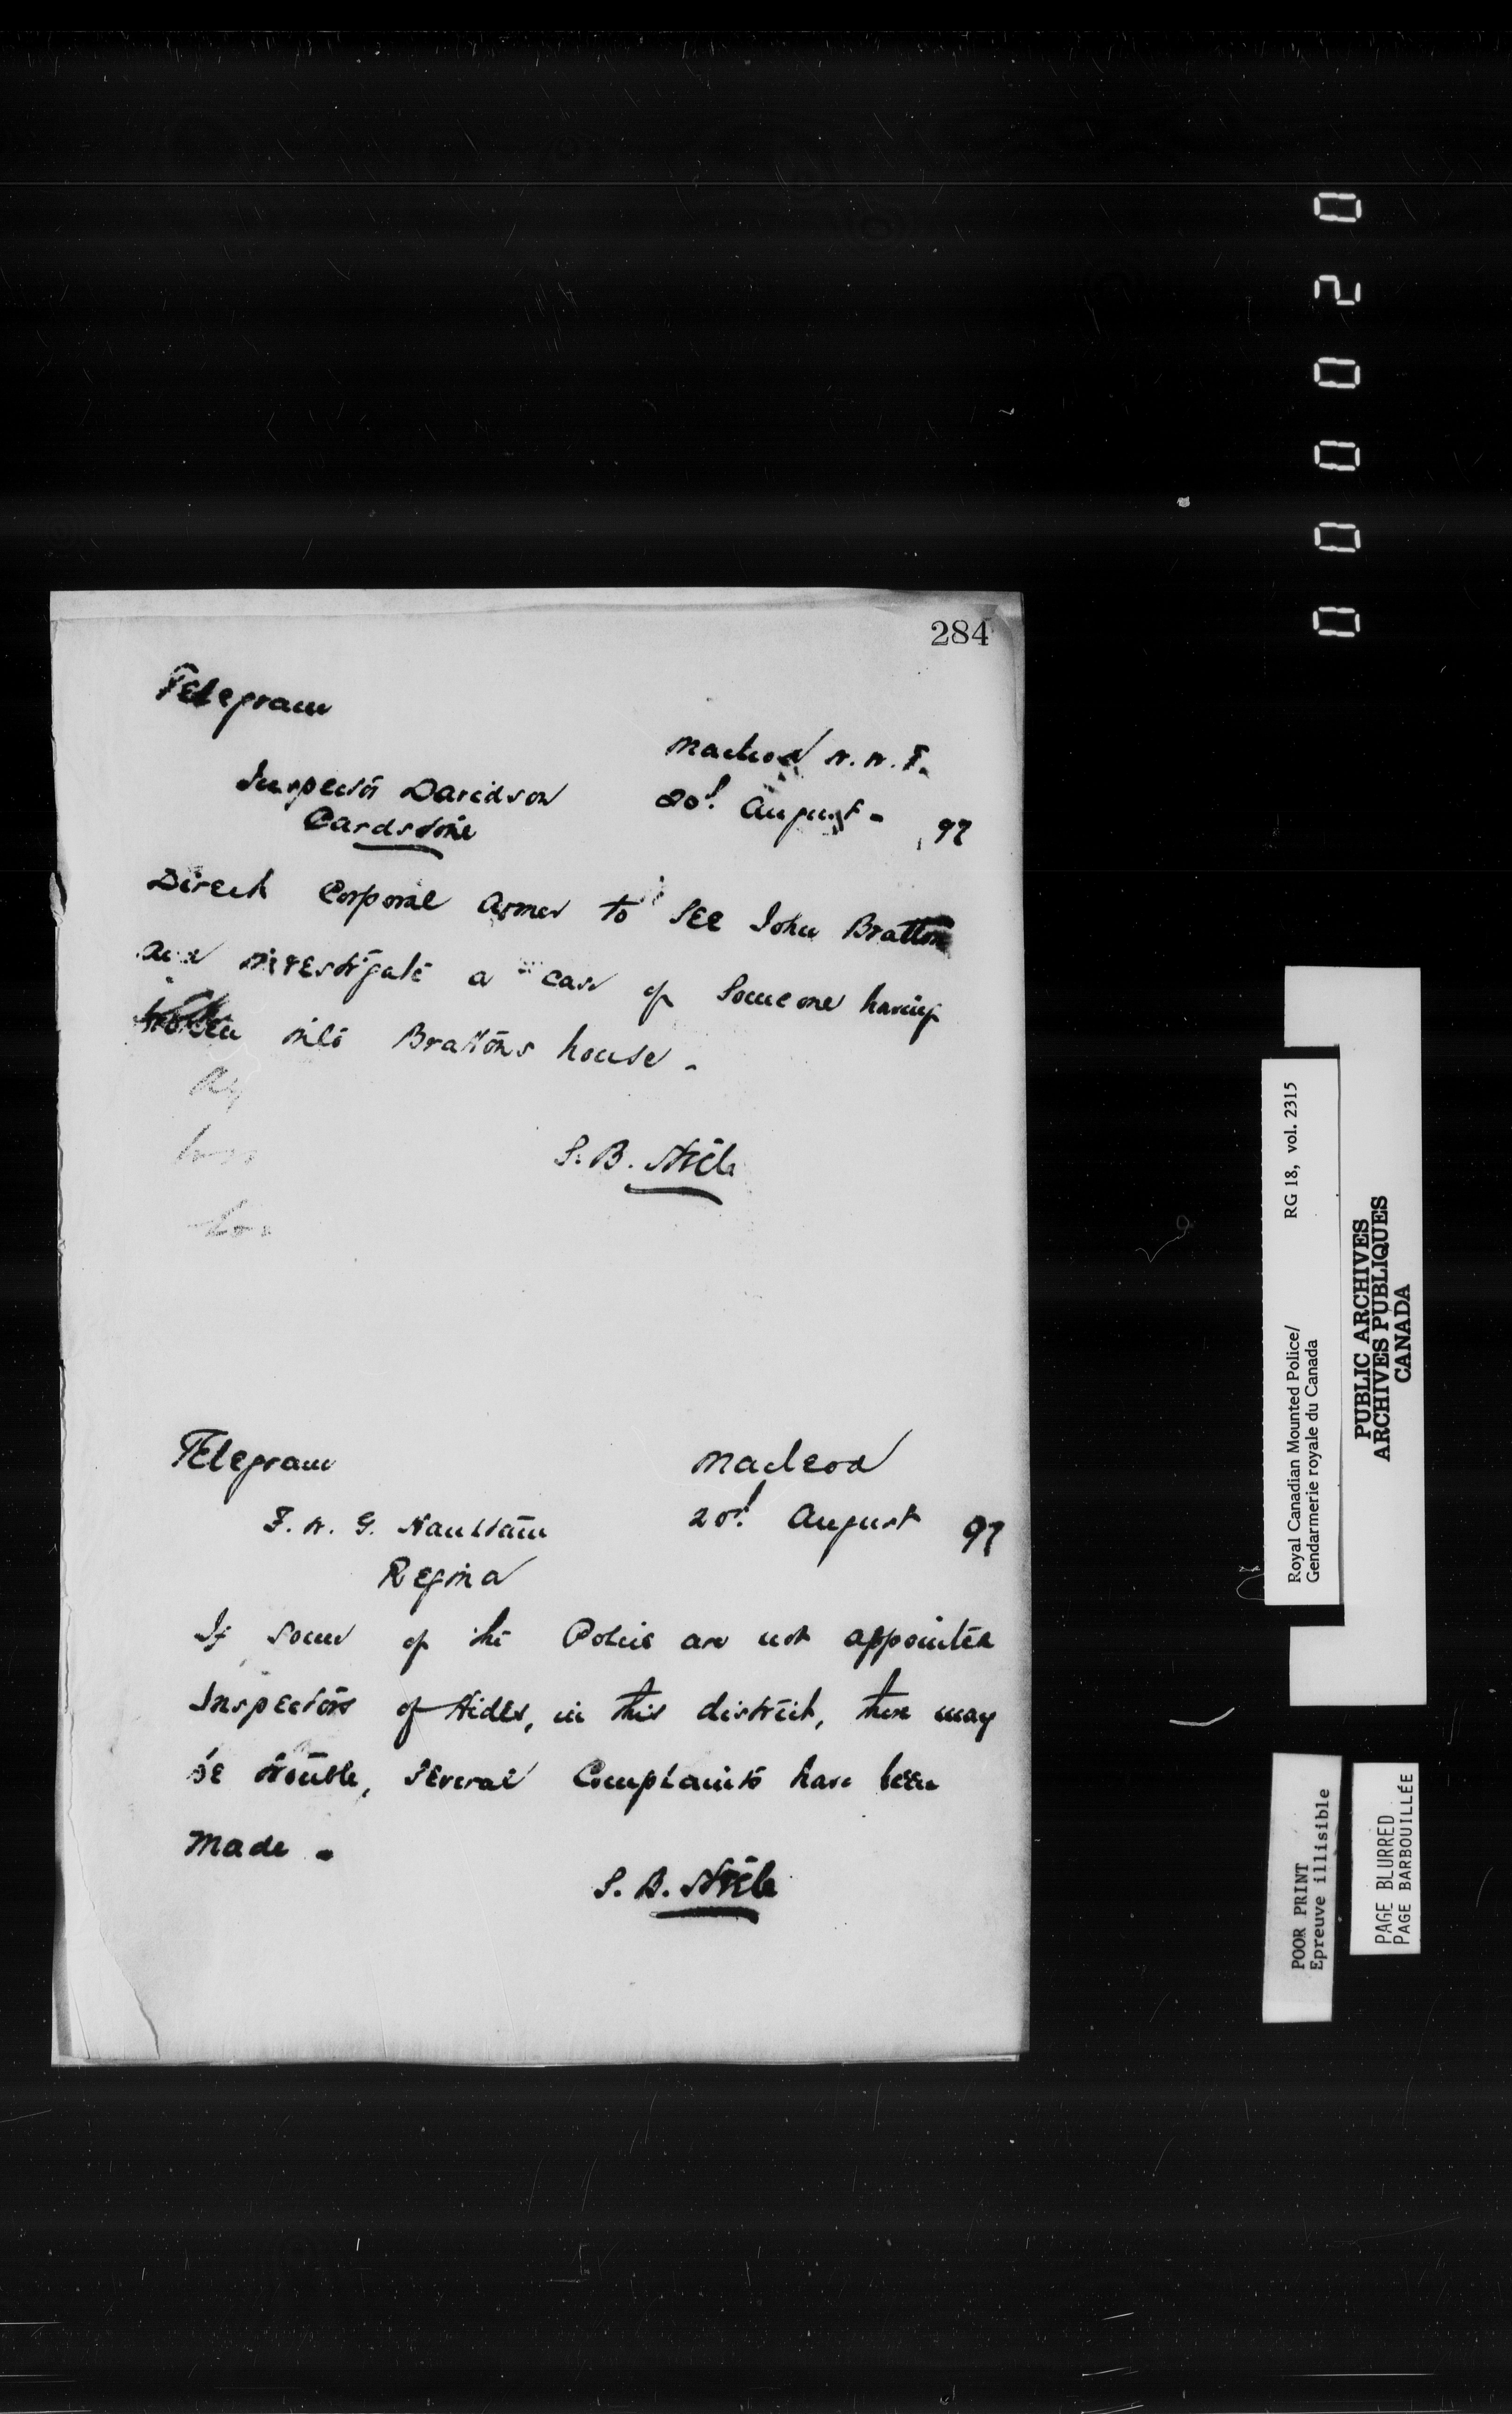 284
Telegram
Macleod N.W.T.
Inspector Davidson
20th August - 97
Cardstone
Direct Corporal Armer to see John Bratton
and investigate a case of someone having
broken into Brattons house -
S. B. Steele
Telegram
Macleod
F. W. G. Haultain
20th August 97
Regina
If some of the Police are not appointed
Inspectors of Hides, in this district, there may
be trouble, several Complaints have been
made -
S. B. Steele
000020
RG 18, vol. 2315
Royal Canadian Mounted Police/
Gendarmerie royale du Canada
PUBLIC ARCHIVES
ARCHIVES PUBLIQUES
CANADA
POOR PRINT
Epreuve illisible
PAGE BLURRED
PAGE BARBOUILLÉE